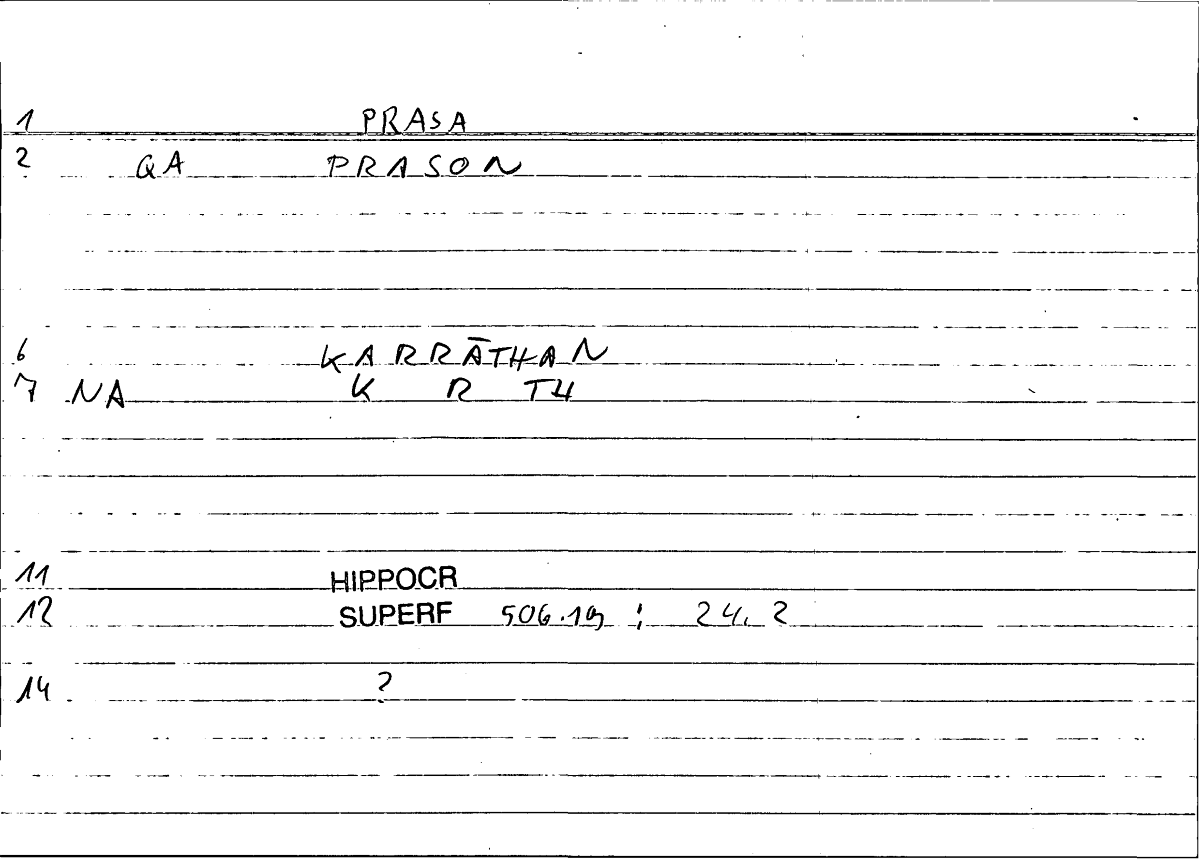 1 PRASA
2 QA PRASON
6 KARRĀTHAN
7 NA K R TH
11 HIPPOCR
12 SUPERF 506.19 ; 24.2
14 ?